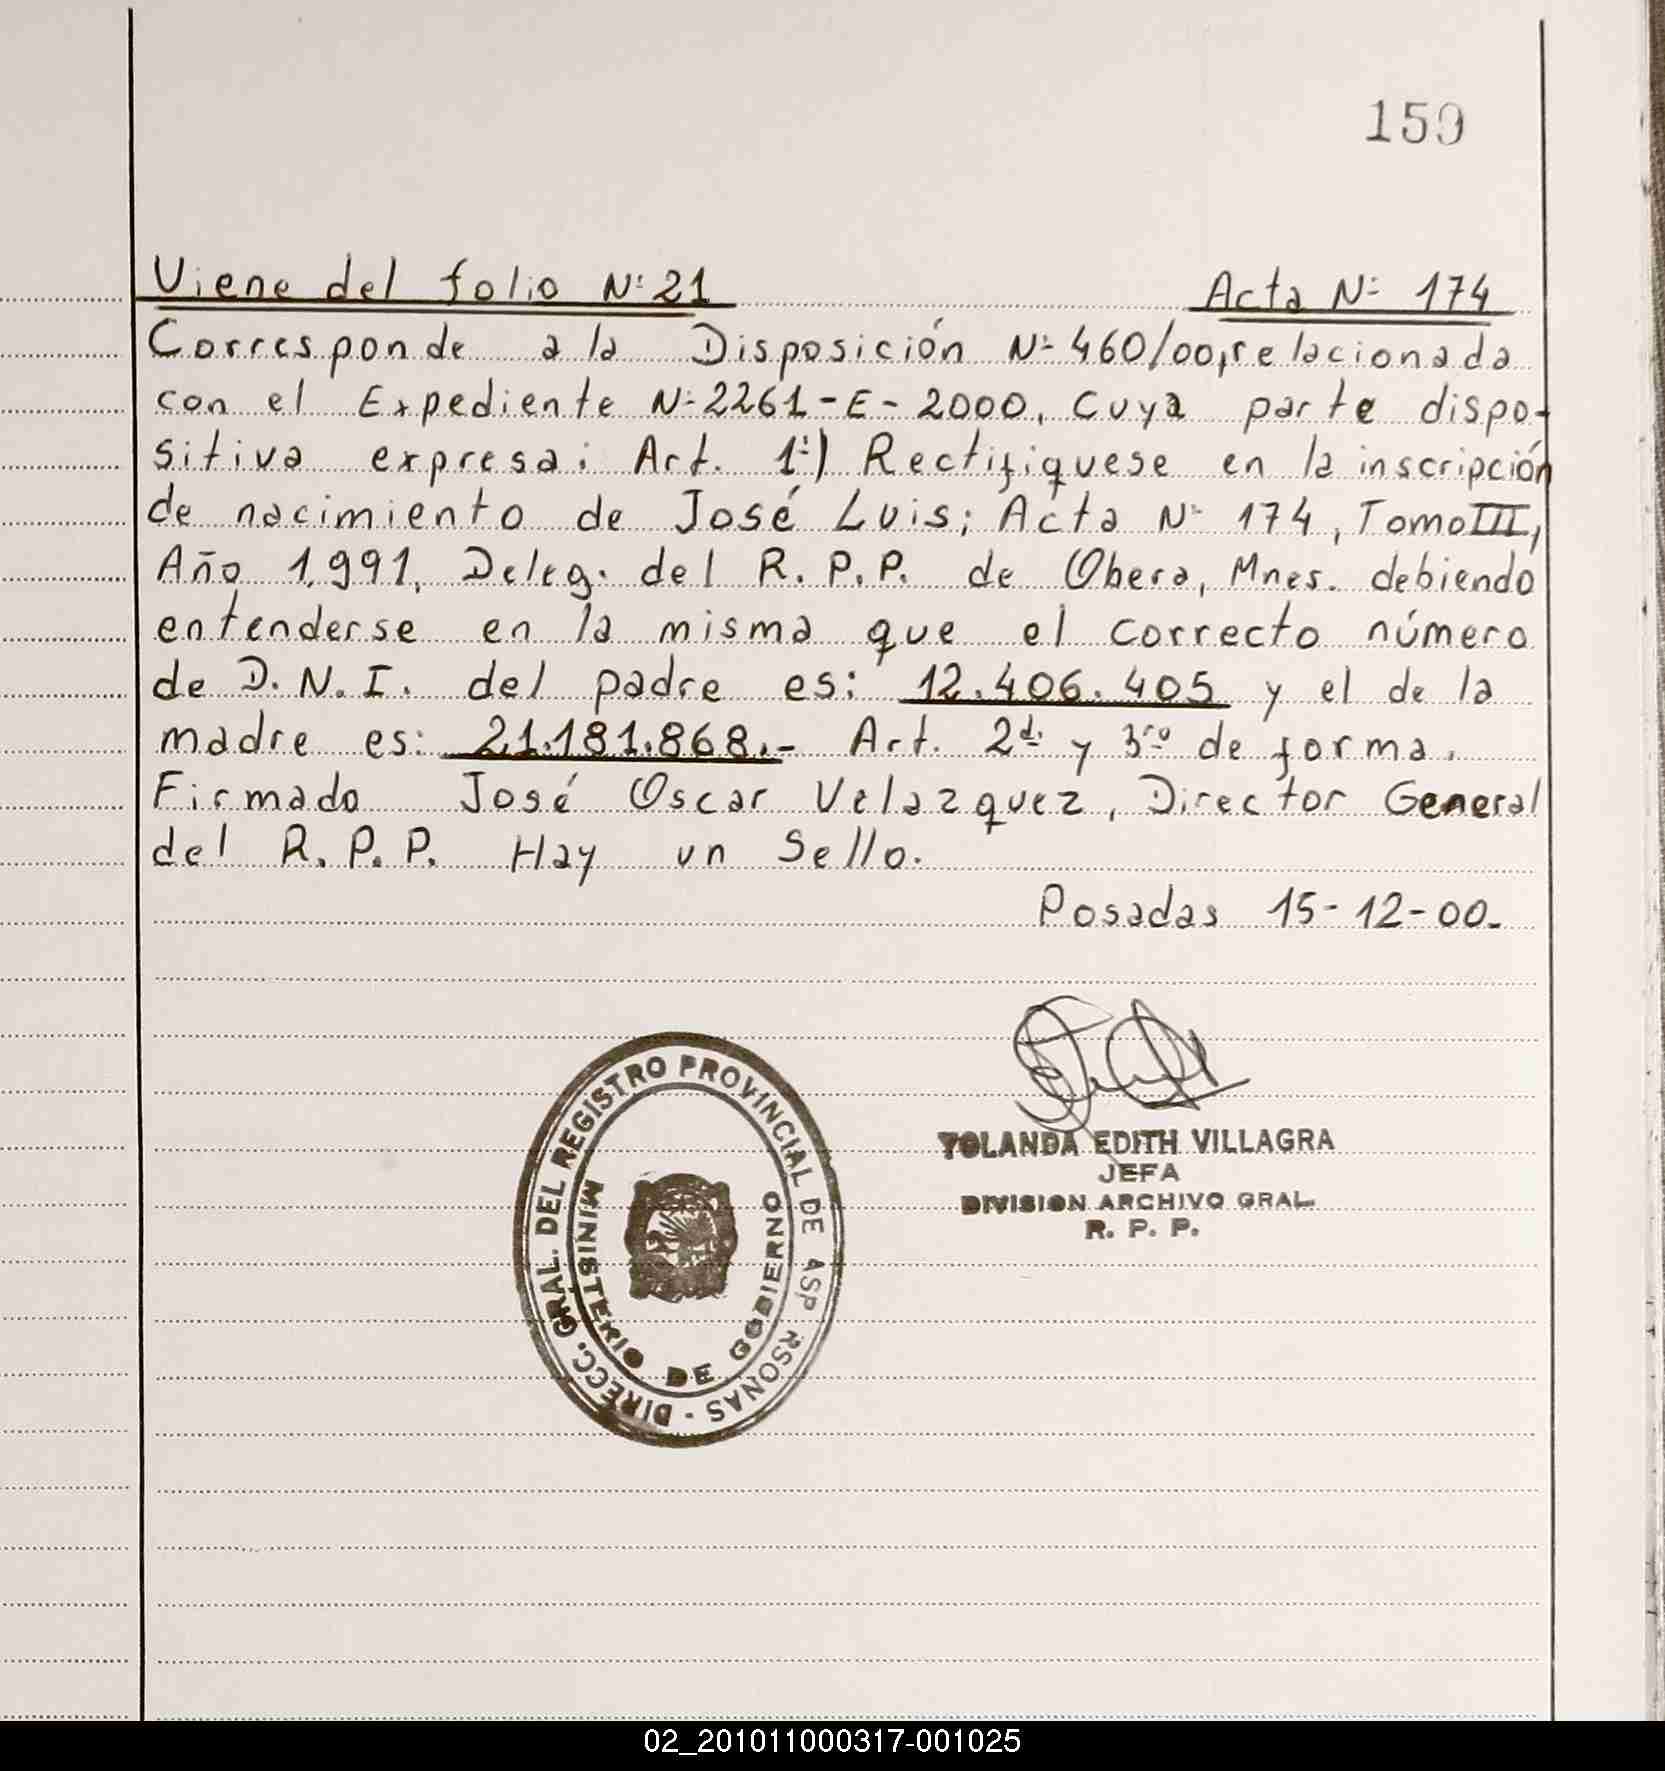 159
Viene del folio Nº 21 Acta Nº 174
Corresponde a la Disposición Nº 460/00, relacionada
con el Expediente Nº 2261-E-2000, cuya parte dispo-
sitiva expresa: Art. 1º) Rectifiquese en la inscripción
de nacimiento de José Luis; Acta Nº 174, Tomo III,
Año 1.991. Deleg. del R.P.P. de Obera, Mnes. debiendo
entenderse en la misma que el correcto número
de D.N.I. del padre es: 12.406.405 y el de la
madre es: 21.181.868.- Art. 2do y 3ro de forma.
Firmado José Oscar Velazquez, Director General
del R.P.P. Hay un Sello.
Posadas 15-12-00.-
DIRECC. GRAL. DEL REGISTRO PROVINCIAL DE ASP RSONAS -
MINISTERIO DE GOBIERNO
YOLANDA EDITH VILLAGRA
JEFA
DIVISION ARCHIVO GRAL.
R. P. P.
02_201011000317-001025